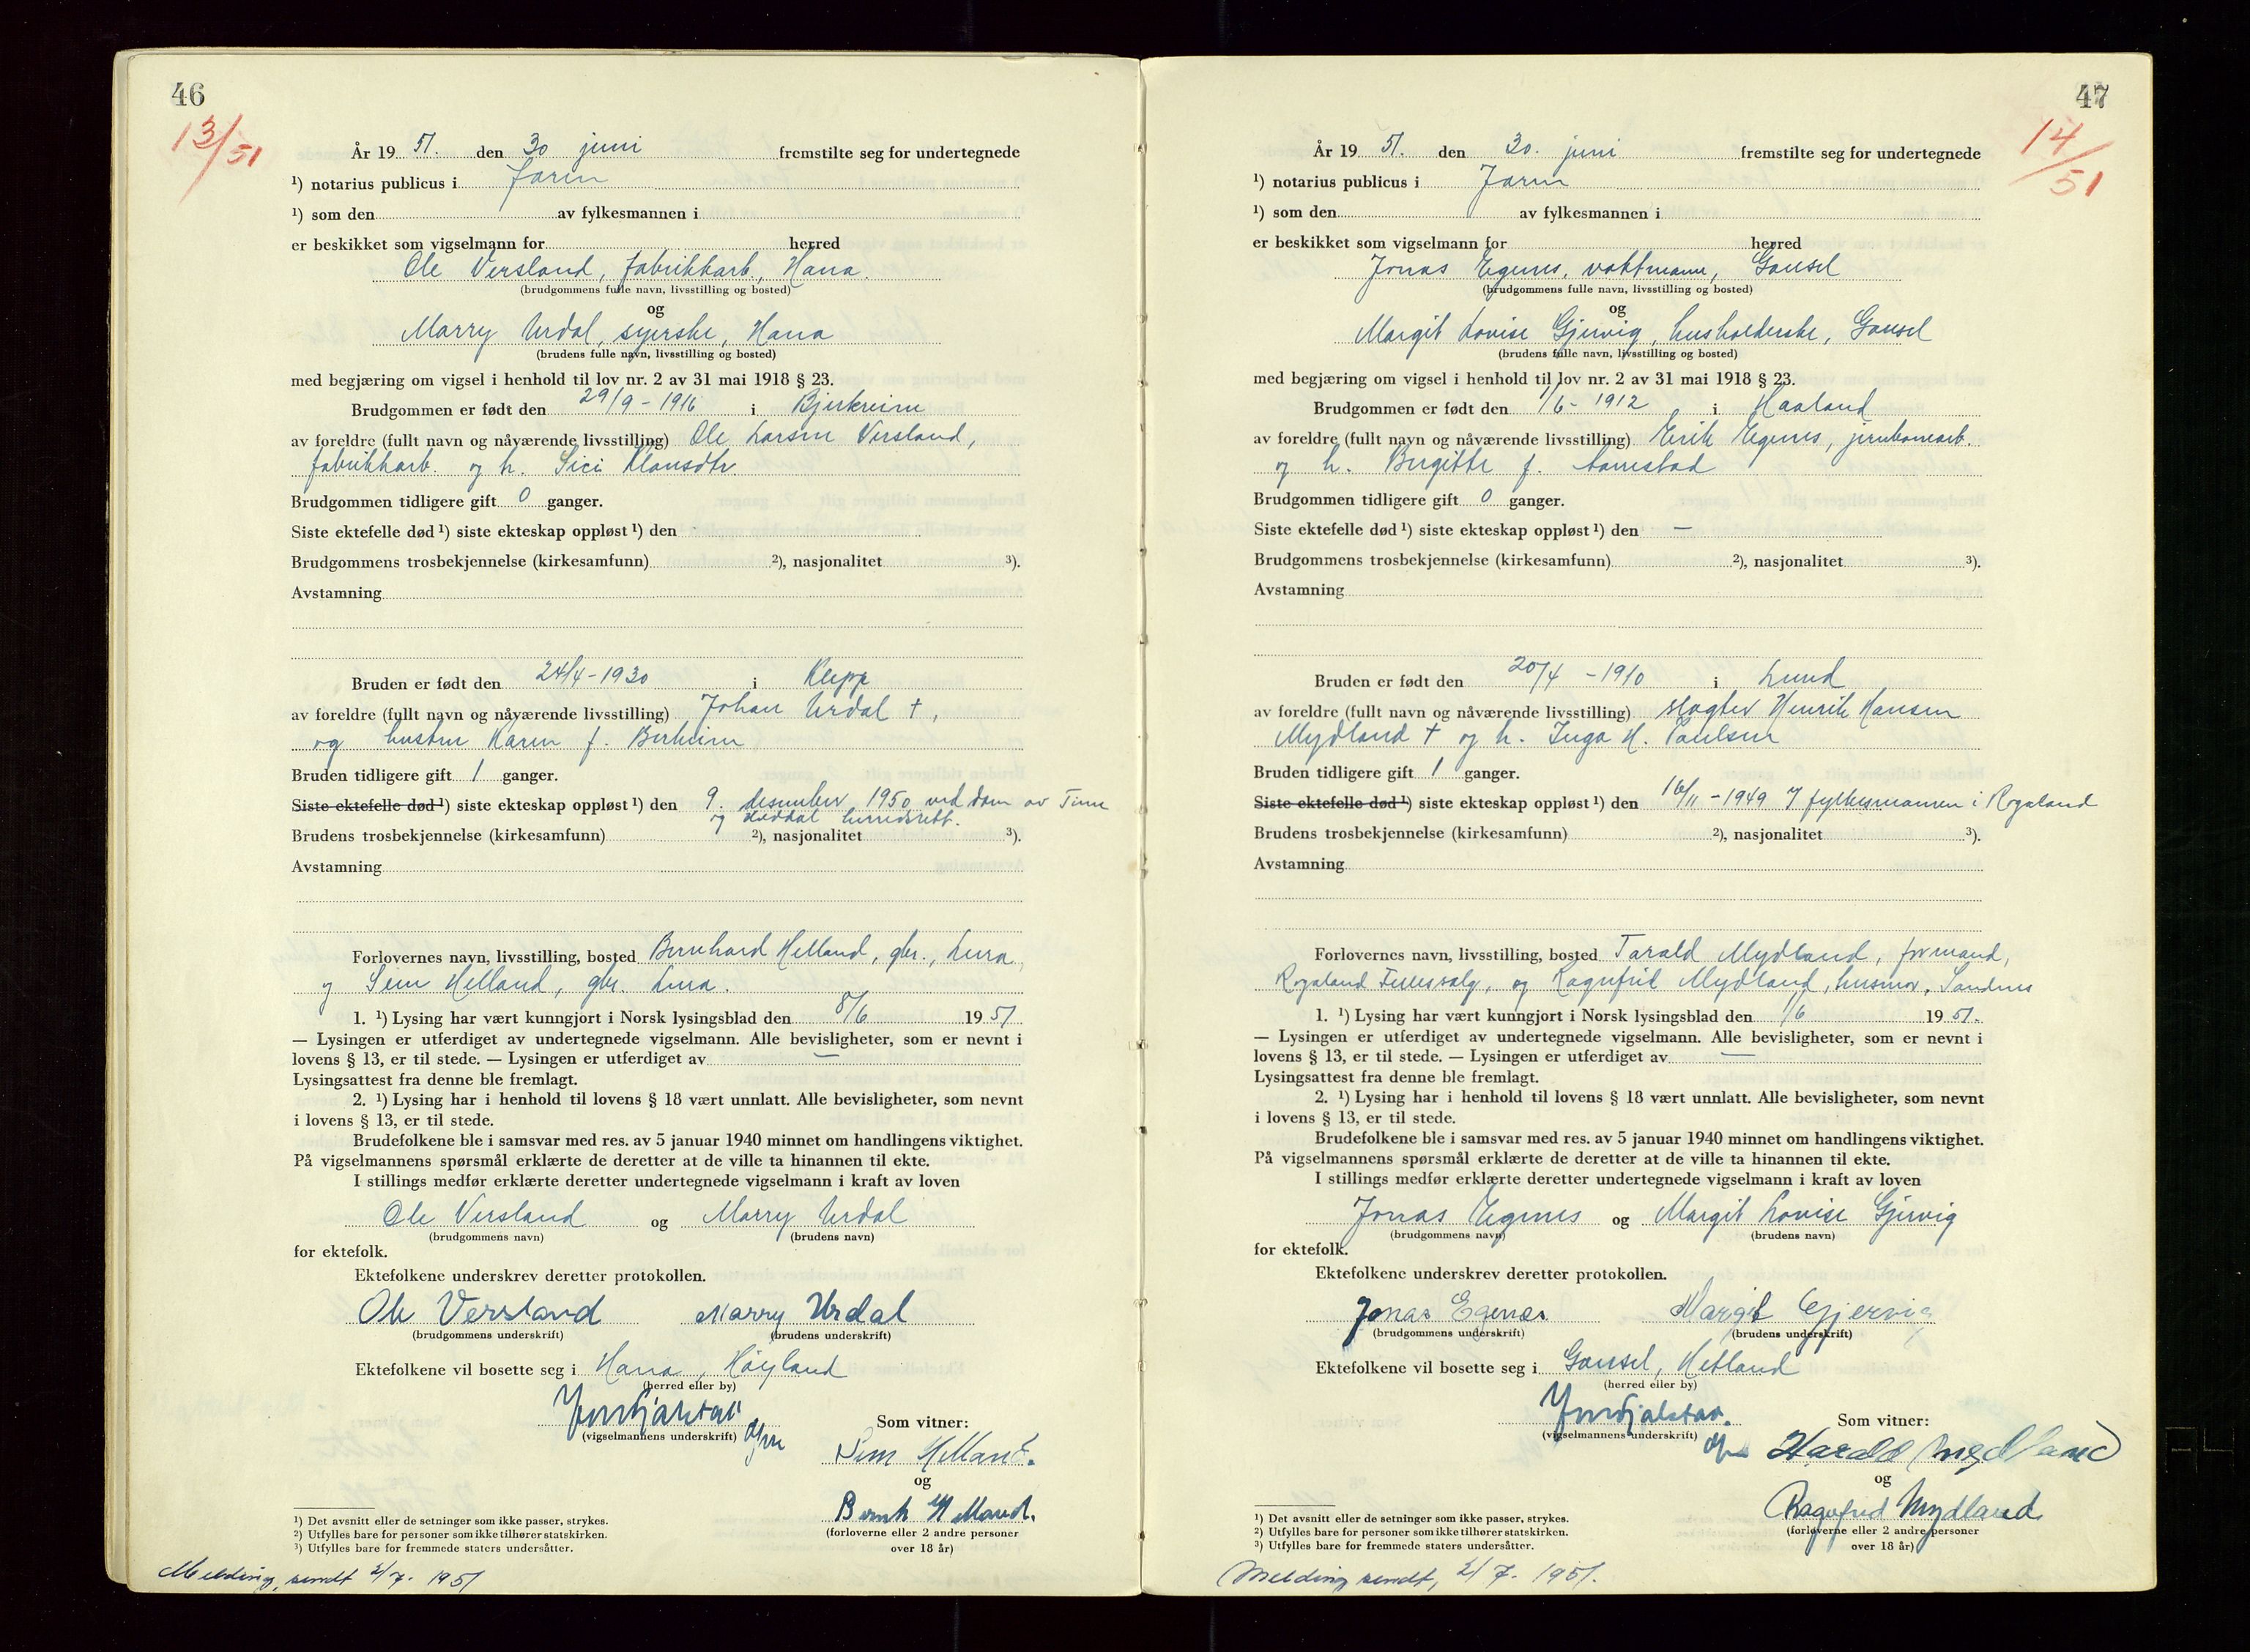 46
13/51
År 19 51. den 30 juni fremstilte seg for undertegnede
¹) notarius publicus i Jæren
¹) som den av fylkesmannen i
er beskikket som vigselmann for herred
Ole Versland, fabrikkarb., Hana.
(brudgommens fulle navn, livsstilling og bosted)
og
Marry Urdal, syerske, Hana
(brudens fulle navn, livsstilling og bosted)
med begjæring om vigsel i henhold til lov nr. 2 av 31 mai 1918 § 23.
Brudgommen er født den 29/9 - 1916 i Bjerkreim
av foreldre (fullt navn og nåværende livsstilling) Ole Larsen Versland,
fabrikkarb. og h. Sici Klausdtr
Brudgommen tidligere gift 0 ganger.
Siste ektefelle død ¹) siste ekteskap oppløst ¹) den
Brudgommens trosbekjennelse (kirkesamfunn) ²), nasjonalitet ³).
Avstamning
Bruden er født den 24/4 - 1930 i Klepp
av foreldre (fullt navn og nåværende livsstilling) Johan Urdal †,
og hustru Karen f. Birkeim
Bruden tidligere gift 1 ganger.
Siste ektefelle død ¹) siste ekteskap oppløst ¹) den 9. desember 1950 ved dom av Time
og herredsrett.
Brudens trosbekjennelse (kirkesamfunn) ²), nasjonalitet ³).
Avstamning
Forlovernes navn, livsstilling, bosted Bernhard Helland, gbr., Lura
og Sem Helland, gbr. Lura.
1. ¹) Lysing har vært kunngjort i Norsk lysingsblad den 8/6 19 51
— Lysingen er utferdiget av undertegnede vigselmann. Alle bevisligheter, som er nevnt i
lovens § 13, er til stede. — Lysingen er utferdiget av —
Lysingsattest fra denne ble fremlagt.
2. ¹) Lysing har i henhold til lovens § 18 vært unnlatt. Alle bevisligheter, som nevnt
i lovens § 13, er til stede.
Brudefolkene ble i samsvar med res. av 5 januar 1940 minnet om handlingens viktighet.
På vigselmannens spørsmål erklærte de deretter at de ville ta hinannen til ekte.
I stillings medfør erklærte deretter undertegnede vigselmann i kraft av loven
Ole Versland og Marry Urdal
(brudgommens navn) (brudens navn)
for ektefolk.
Ektefolkene underskrev deretter protokollen.
Ole Versland Marry Urdal
(brudgommens underskrift) (brudens underskrift)
Ektefolkene vil bosette seg i Hana, Høyland
(herred eller by)
(vigselmannens underskrift)
Som vitner:
Sem Helland.
og
Bernh Helland.
(forloverne eller 2 andre personer
over 18 år)
¹) Det avsnitt eller de setninger som ikke passer, strykes.
²) Utfylles bare for personer som ikke tilhører statskirken.
³) Utfylles bare for fremmede staters undersåtter.
Melding sendt 2/7. 1951
47
14/51
År 19 51. den 30. juni fremstilte seg for undertegnede
¹) notarius publicus i Jæren
¹) som den av fylkesmannen i
er beskikket som vigselmann for herred
Jonas Egenes, vaktmann, Gausel
(brudgommens fulle navn, livsstilling og bosted)
og
Margit Lovise Gjervig, husholderske, Gausel
(brudens fulle navn, livsstilling og bosted)
med begjæring om vigsel i henhold til lov nr. 2 av 31 mai 1918 § 23.
Brudgommen er født den 1/6 - 1912 i Haaland
av foreldre (fullt navn og nåværende livsstilling) Erik Egenes, jernbanearb.
og h. Birgitte f. Aarrestad
Brudgommen tidligere gift 0 ganger.
Siste ektefelle død ¹) siste ekteskap oppløst ¹) den —
Brudgommens trosbekjennelse (kirkesamfunn) ²), nasjonalitet ³).
Avstamning
Bruden er født den 20/4 - 1910 i Lund
av foreldre (fullt navn og nåværende livsstilling) slagter Henrik Hansen
Mydland † og h. Inga H. Paulsen
Bruden tidligere gift 1 ganger.
Siste ektefelle død ¹) siste ekteskap oppløst ¹) den 16/11 - 1949 fylkesmannen i Rogaland
Brudens trosbekjennelse (kirkesamfunn) ²), nasjonalitet ³).
Avstamning
Forlovernes navn, livsstilling, bosted Tarald Mydland, formand,
Rogaland Fellessalg, og Ragnfrid Mydland, husmor, Sandnes
1. ¹) Lysing har vært kunngjort i Norsk lysingsblad den 1/6 19 51.
— Lysingen er utferdiget av undertegnede vigselmann. Alle bevisligheter, som er nevnt i
lovens § 13, er til stede. — Lysingen er utferdiget av —
Lysingsattest fra denne ble fremlagt.
2. ¹) Lysing har i henhold til lovens § 18 vært unnlatt. Alle bevisligheter, som nevnt
i lovens § 13, er til stede.
Brudefolkene ble i samsvar med res. av 5 januar 1940 minnet om handlingens viktighet.
På vigselmannens spørsmål erklærte de deretter at de ville ta hinannen til ekte.
I stillings medfør erklærte deretter undertegnede vigselmann i kraft av loven
Jonas Egenes og Margit Lovise Gjervig
(brudgommens navn) (brudens navn)
for ektefolk.
Ektefolkene underskrev deretter protokollen.
Jonas Egenes Margit Gjervig
(brudgommens underskrift) (brudens underskrift)
Ektefolkene vil bosette seg i Gausel, Hetland
(herred eller by)
(vigselmannens underskrift)
Som vitner:
Harald Mydland
og
Ragnfrid Mydland
(forloverne eller 2 andre personer
over 18 år)
¹) Det avsnitt eller de setninger som ikke passer, strykes.
²) Utfylles bare for personer som ikke tilhører statskirken.
³) Utfylles bare for fremmede staters undersåtter.
Melding sendt, 2/7. 1951.